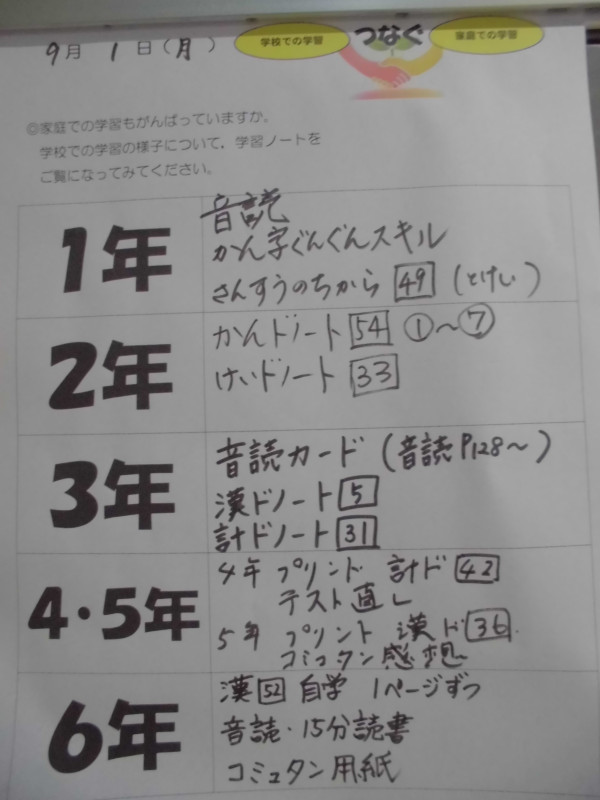 9月 1日(月)
学校での学習 つなぐ 家庭での学習
◎家庭での学習もがんばっていますか。
学校での学習の様子について、学習ノートを
ご覧になってみてください。
1年
音読
かん字ぐんぐんスキル
さんすうのちから 49 (とけい)
2年
かんドノート 54 ①~⑦
けいドノート 33
3年
音読カード (音読P128~)
漢ドノート 5
計ドノート 31
4・5年
4年 プリント 計ド 42
テスト直し
5年 プリント 漢ド 36
コミュタン感想
6年
漢 52 自学 1ページずつ
音読・15分読書
コミュタン用紙